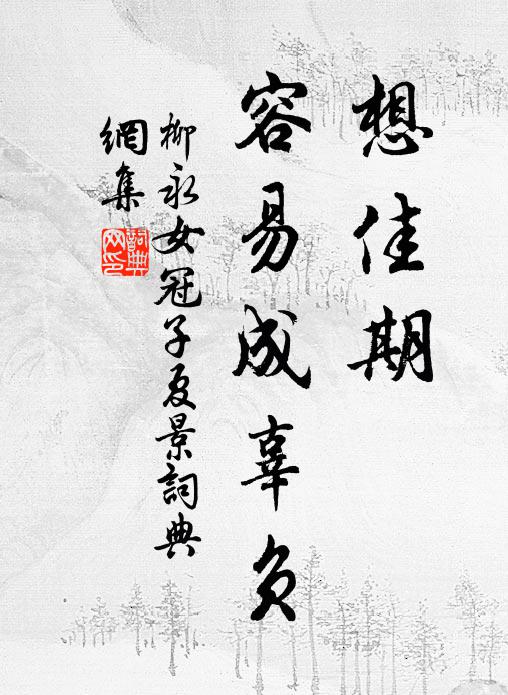 想佳期
容易成辜负
柳永女冠子夏景詞典
網集
詞典
网印